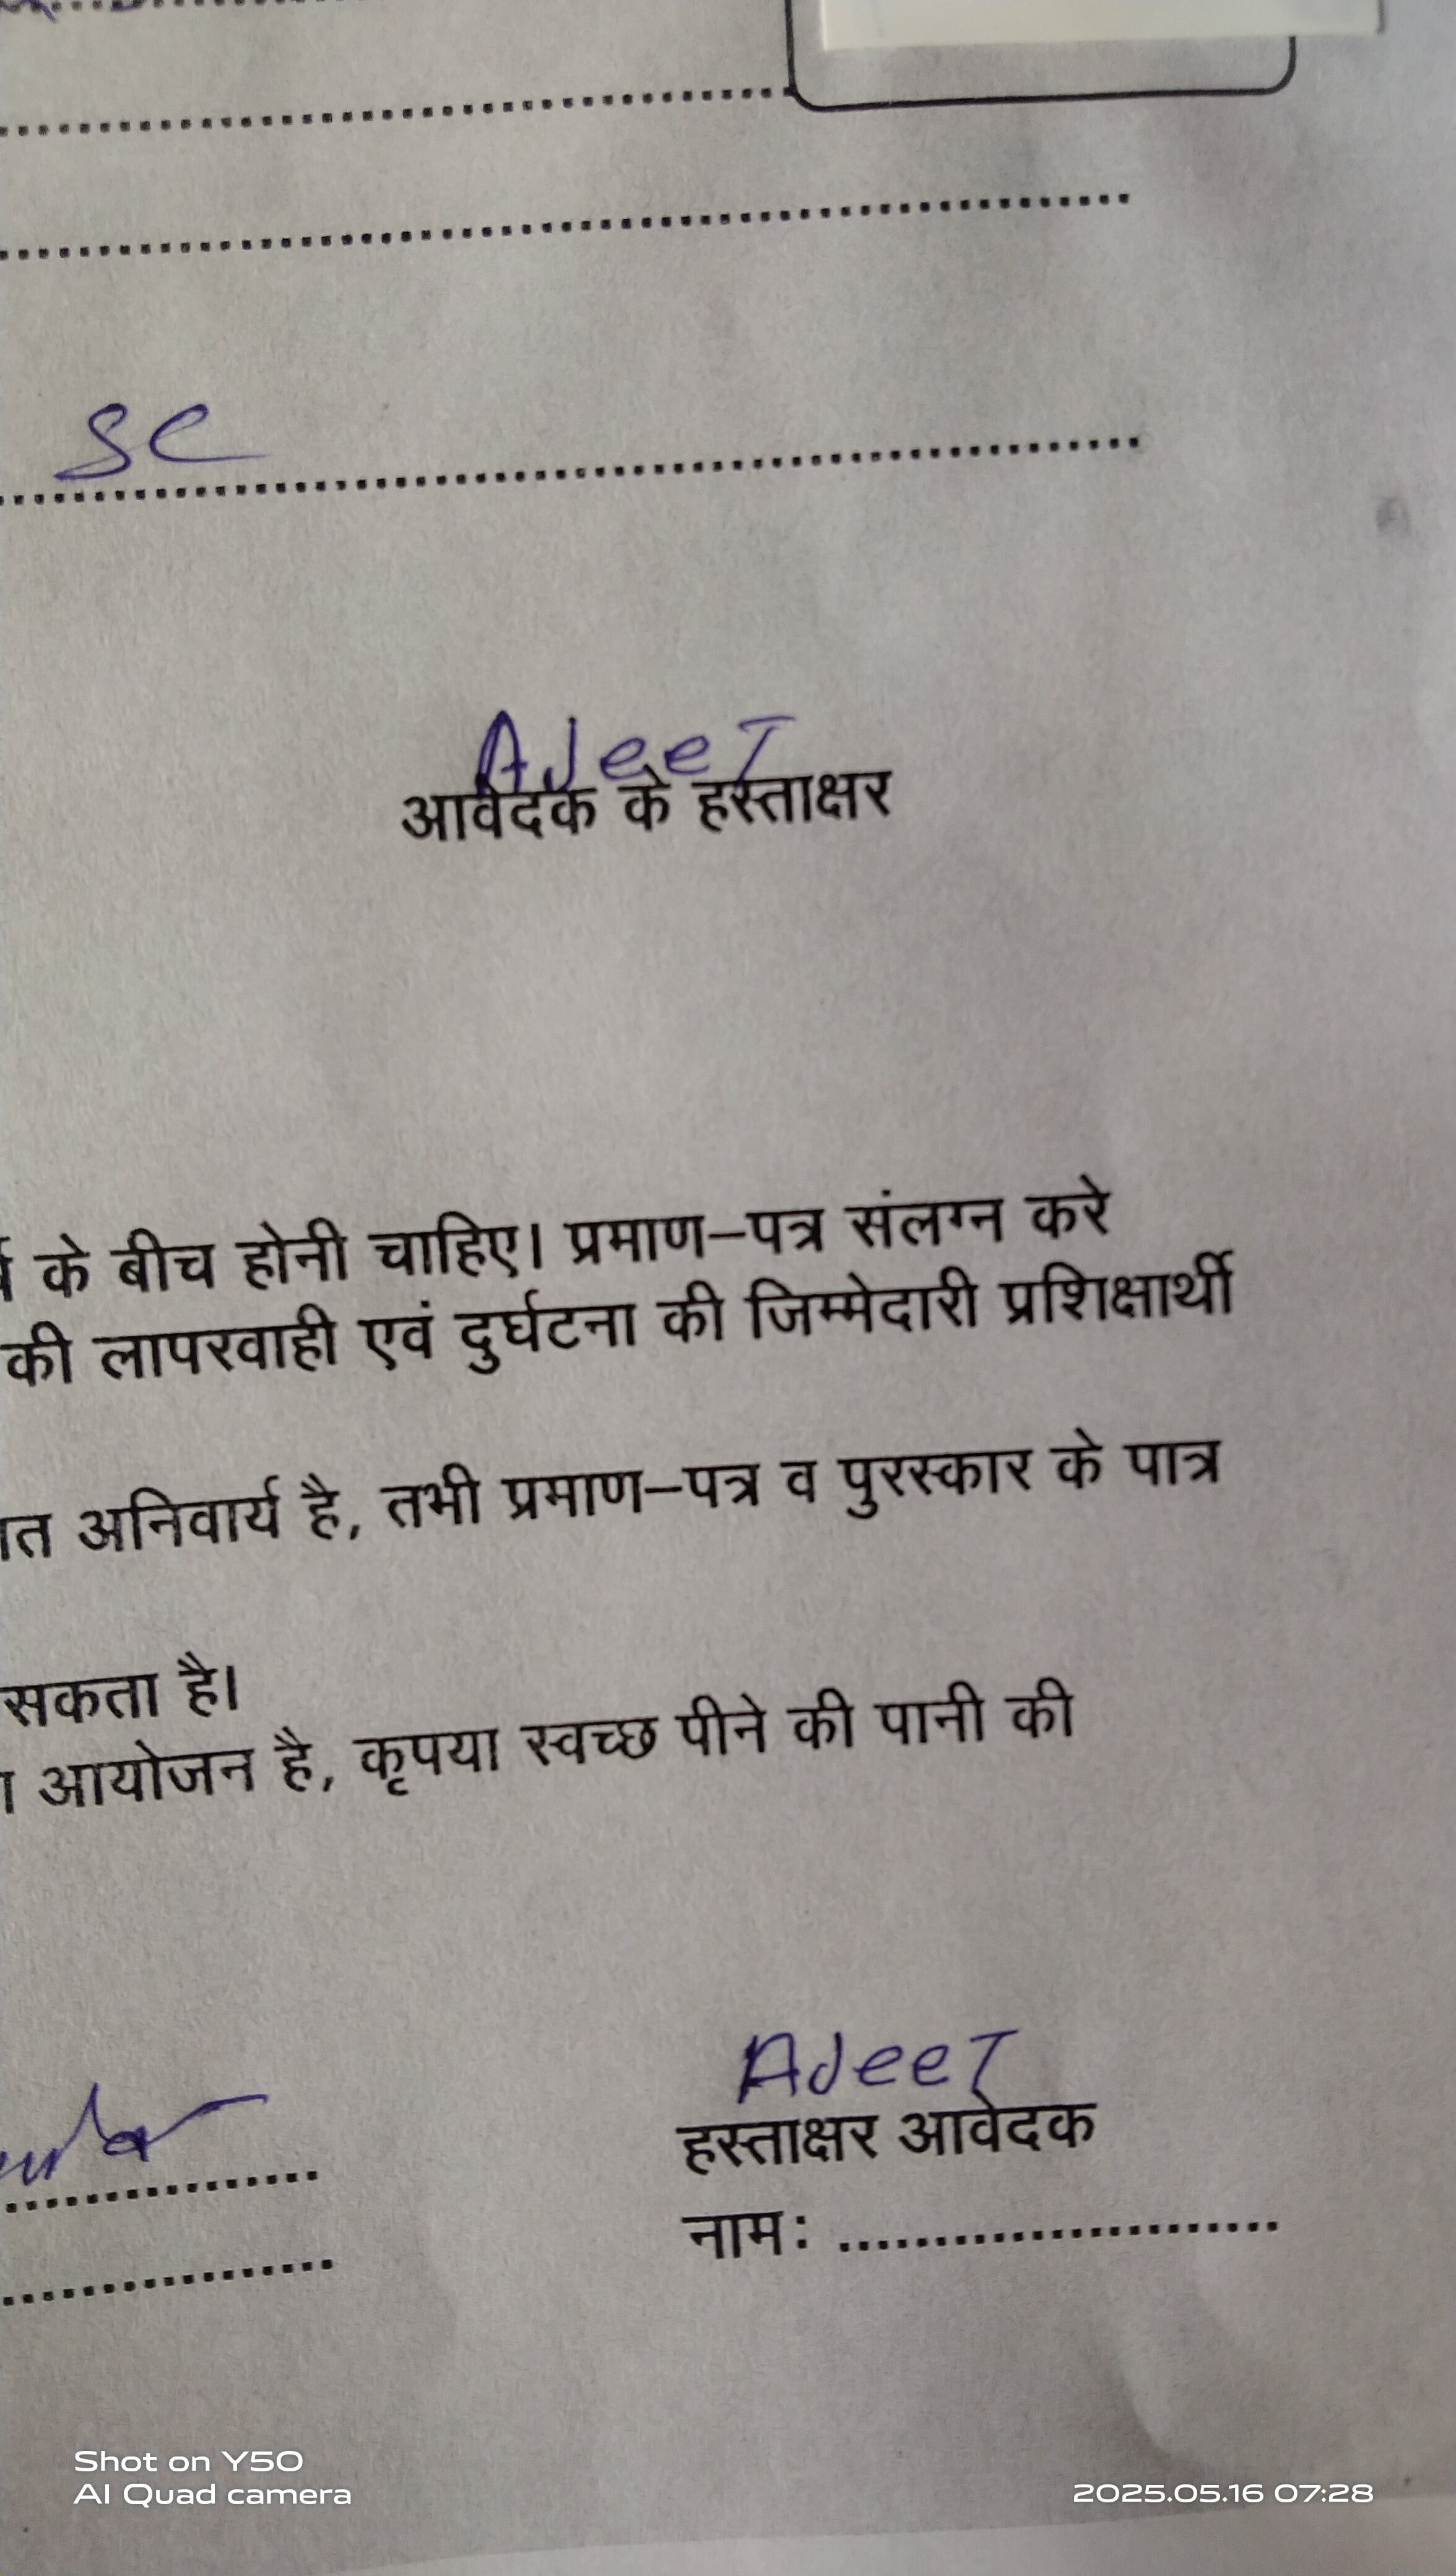 SC
AJeeT
आवेदक के हस्ताक्षर
के बीच होनी चाहिए। प्रमाण–पत्र संलग्न करे
की लापरवाही एवं दुर्घटना की जिम्मेदारी प्रशिक्षार्थी
अनिवार्य है, तभी प्रमाण–पत्र व पुरस्कार के पात्र
सकता है।
आयोजन है, कृपया स्वच्छ पीने की पानी की
AJeeT
हस्ताक्षर आवेदक
नाम: ........................
Shot on Y50
AI Quad camera
2025.05.16 07:28